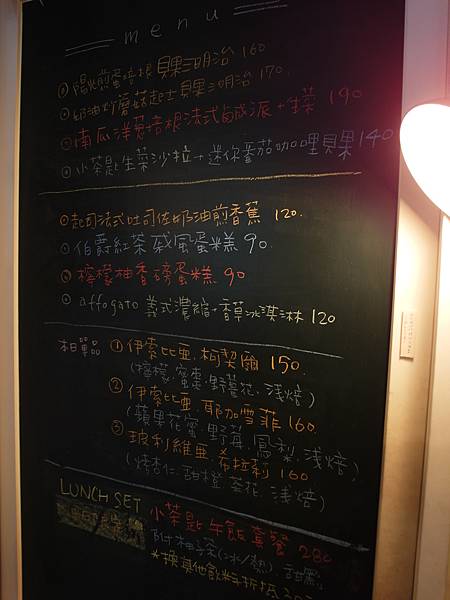 menu
陽光煎蛋培根貝果三明治 160
奶油炒蘑菇起士貝果三明治 170.
南瓜洋蔥培根法式鹹派+生菜 190
小茶匙生菜沙拉+迷你蕃茄咖哩貝果 140
起司法式吐司佐奶油煎香蕉 120.
伯爵紅茶戚風蛋糕 90.
檸檬柚香磅蛋糕 90
affogato 義式濃縮+香草冰淇淋 120
單品 ① 伊索比亞.柯契爾 150.
(檸檬.蜜棗.野薑花.淺焙)
② 伊索比亞.耶加雪菲 160.
(蘋果花蜜.野莓.鳳梨.淺焙)
③ 玻利維亞.希拉莉 160
(烤杏仁.甜橙.茶花.淺焙)
LUNCH SET
小茶匙午飯套餐 280
附柚茶(冰/熱)
*換其他飲料折抵